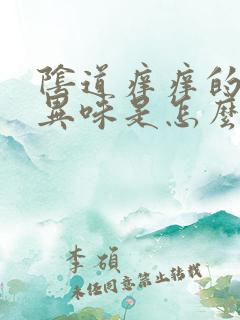 陰道痒痒的
異味是怎麼
李碩
未經同意禁止轉載